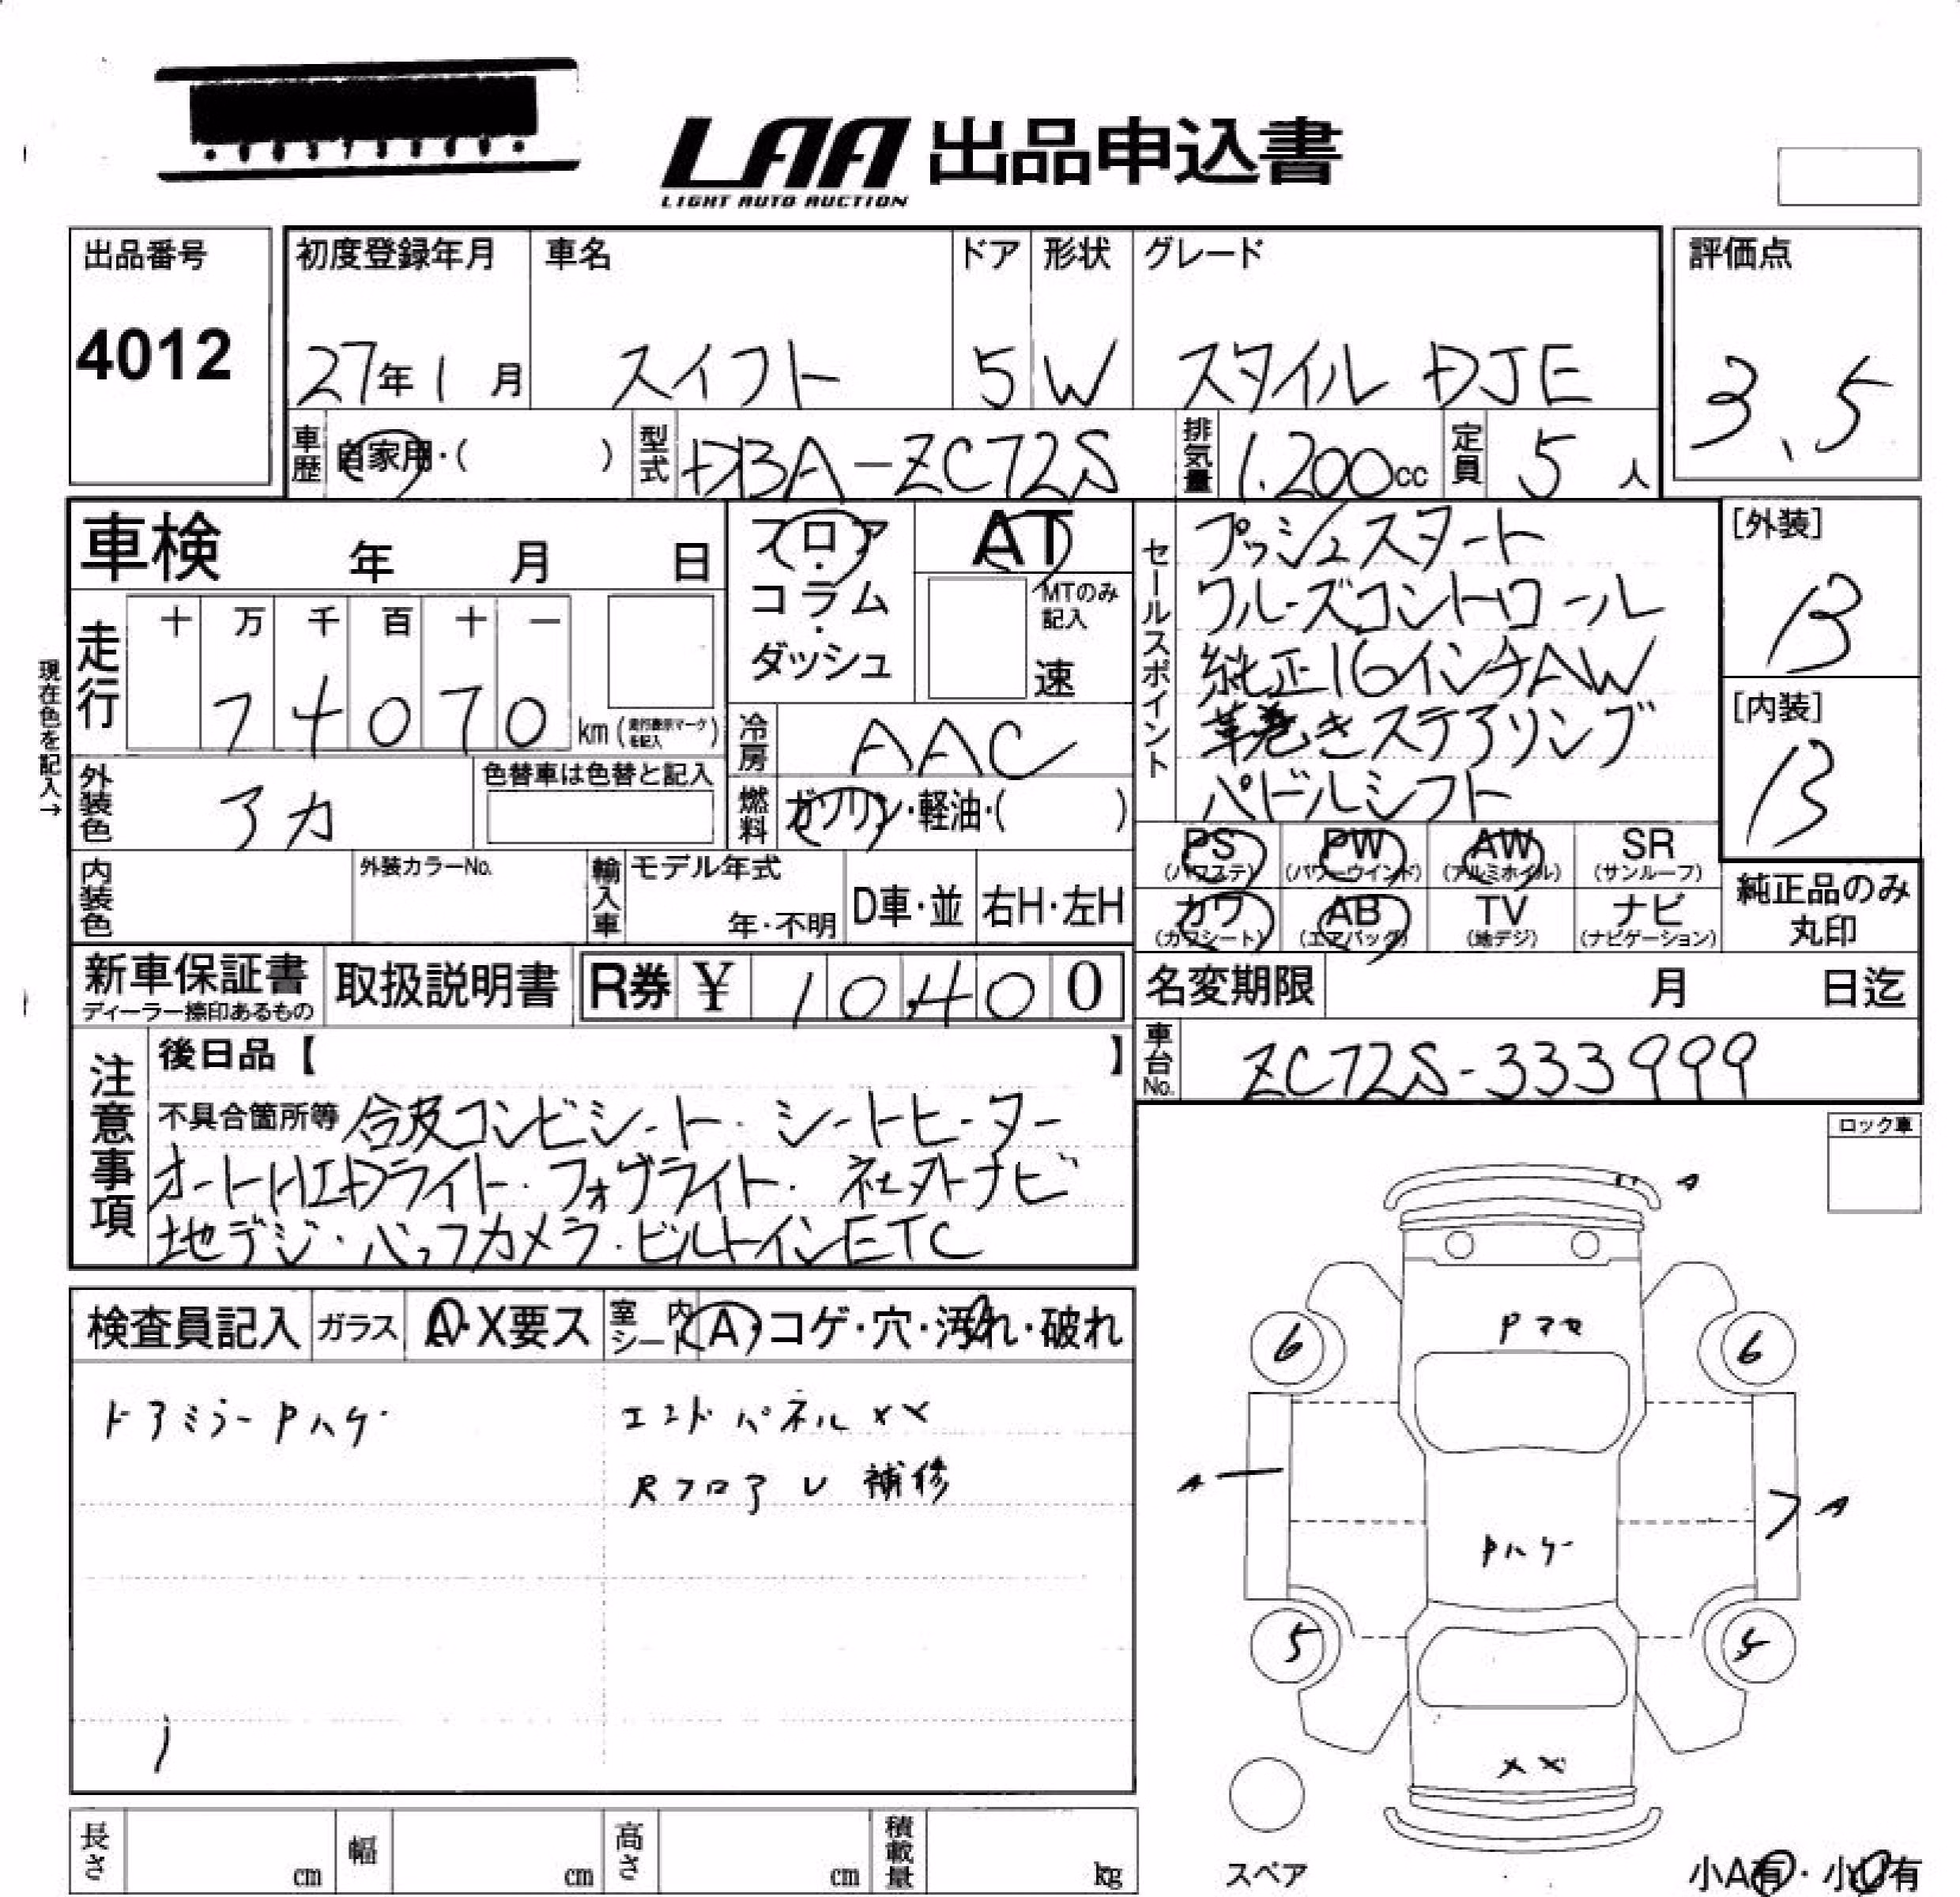 LAA 出品申込書
LIGHT AUTO AUCTION
出品番号
4012
初度登録年月 車名 ドア 形状 グレード
27年1月 スイフト 5 W スタイル DJE
評価点
3.5
車歴 自家用・( ) 型式 DBA-ZC72S 排気量 1.200cc 定員 5人
車検 年 月 日
現在色を記入→
走行 十 万 千 百 十 一
74070 km (走行表示マークを記入)
外装色 アカ 色替車は色替と記入
内装色 外装カラーNo. 輸入車 モデル年式 年・不明 D車・並 右H・左H
フロア・コラム・ダッシュ
AT
MTのみ記入
速
冷房 AAC
燃料 ガソリン・軽油・( )
セールスポイント
プッシュスタート
クルーズコントロール
純正16インチAW
革巻きステアリング
パドルシフト
[外装]
B
[内装]
B
PS (パワステ) PW (パワーウインド) AW (アルミホイル) SR (サンルーフ)
カワ (カワシート) AB (エアバッグ) TV (地デジ) ナビ (ナビゲーション)
純正品のみ
丸印
新車保証書
ディーラー捺印あるもの
取扱説明書 R券 ¥ 10,400
名変期限 月 日迄
車台No. ZC72S-333999
注意事項
後日品【 】
不具合箇所等 合皮コンビシート・シートヒーター
オートHIDライト・フォグライト・社外ナビ
地デジ・バックカメラ・ビルトインETC
ロック車
検査員記入 ガラス A・X要ス 室内シート A・コゲ・穴・汚れ・破れ
ドアミラーPハゲ エンドパネルXX
Rフロア U 補修
A
Pマセ
6 6
A A
Pハゲ
5 5
XX
スペア
小A有・小U有
長さ cm 幅 cm 高さ cm 積載量 kg